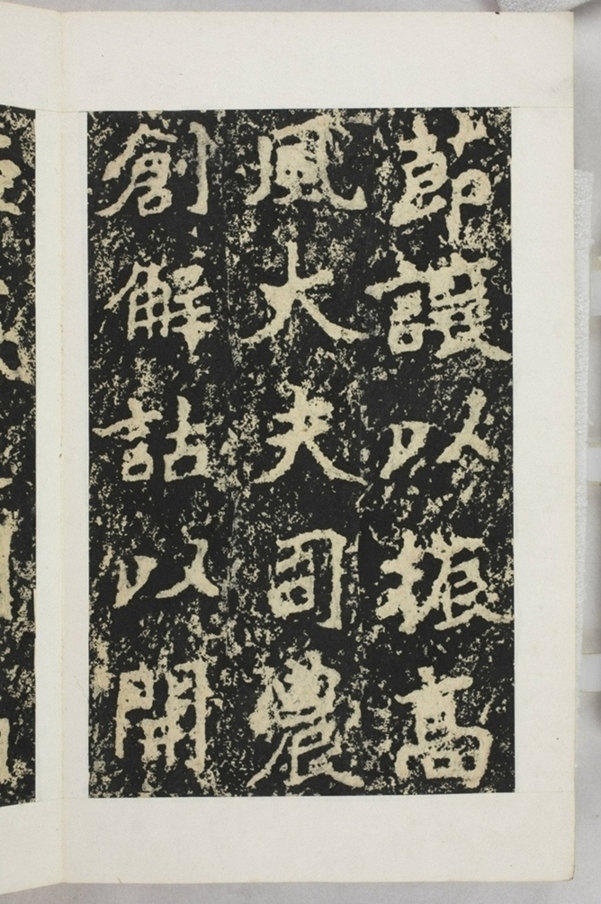 節讓以振高
風大夫司農
創解詁以開